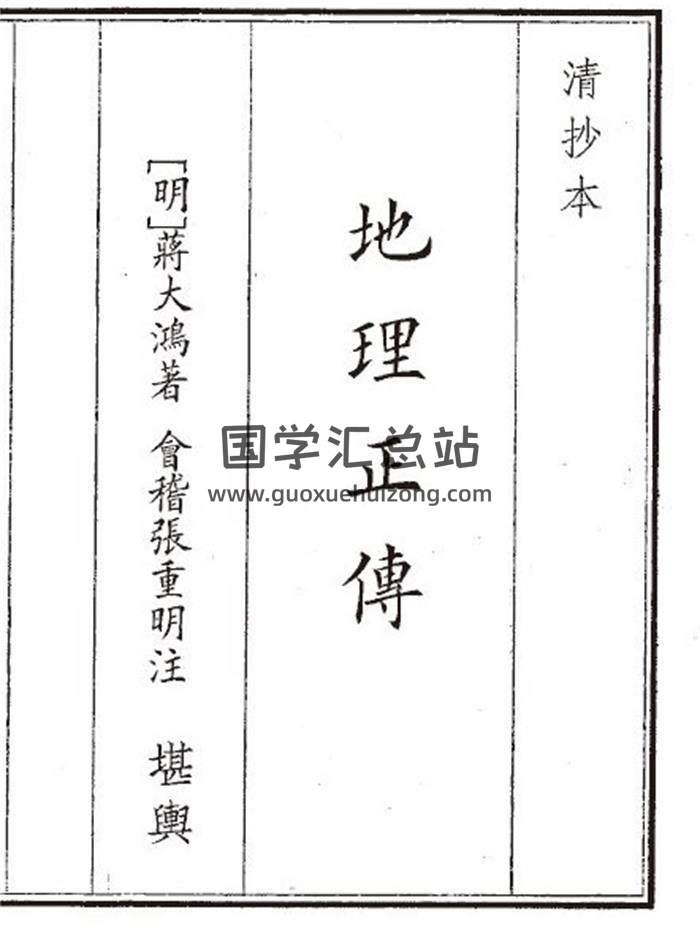 清抄本
地理正傳
[明]蔣大鴻著 會稽張重明注 堪輿
国学汇总站
www.guoxuehuizong.com